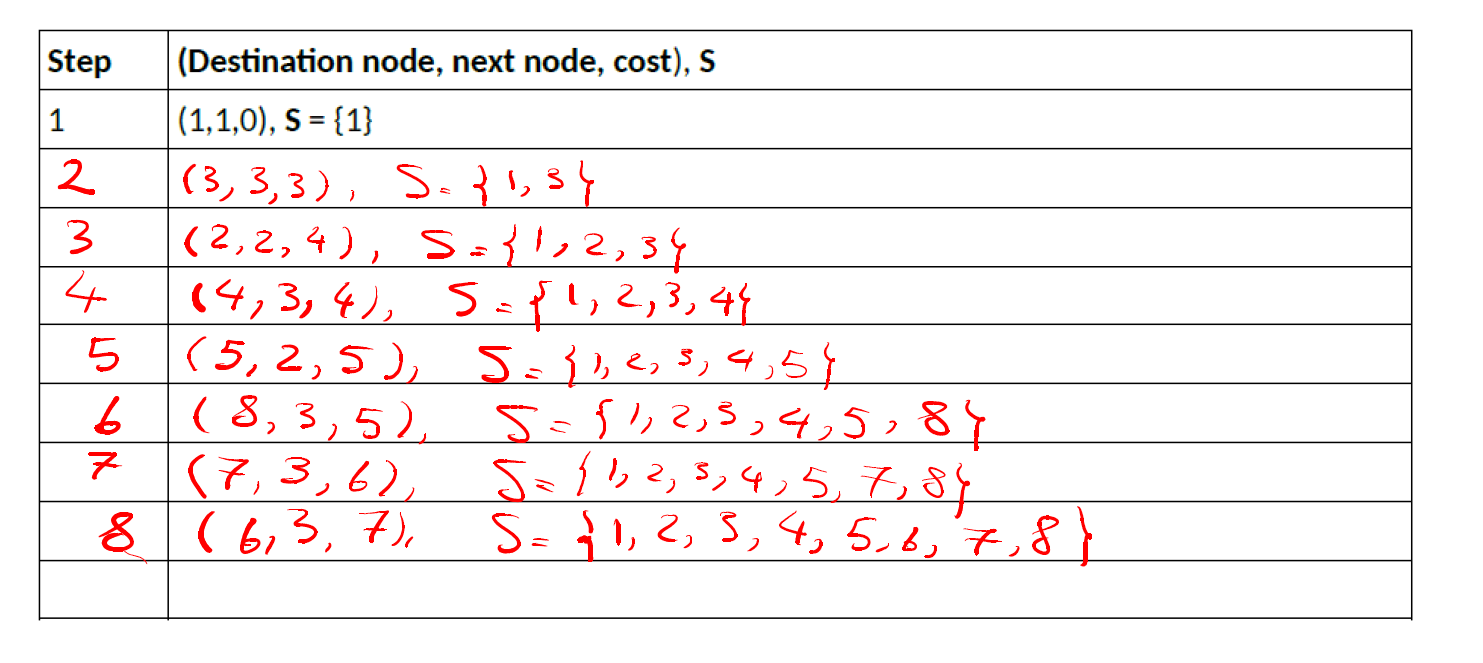 Step (Destination node, next node, cost), S
1 (1,1,0), S = {1}
2 (3, 3, 3), S = {1, 3}
3 (2, 2, 4), S = {1, 2, 3}
4 (4, 3, 4), S = {1, 2, 3, 4}
5 (5, 2, 5), S = {1, 2, 3, 4, 5}
6 (8, 3, 5), S = {1, 2, 3, 4, 5, 8}
7 (7, 3, 6), S = {1, 2, 3, 4, 5, 7, 8}
8 (6, 3, 7), S = {1, 2, 3, 4, 5, 6, 7, 8}